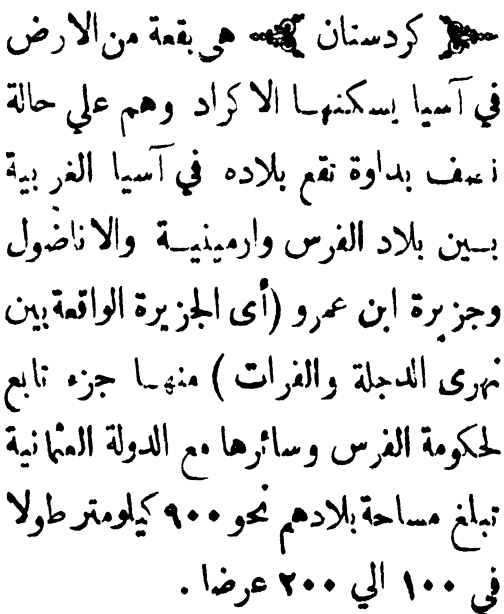 كردستان هي بقعة من الارض
في آسيا يسكنهـا الاكراد وهم علي حالة
نصف بداوة تقع بلاده في آسيا الغربية
بـين بلاد الفرس وارمينيـة والاناضول
وجزيرة ابن عمرو (أى الجزيرة الواقعة بين
نهرى الدجلة والفرات) منهـا جزء تابع
لحكومة الفرس وسائرها مع الدولة العثمانية
تبلغ مساحة بلادهم نحو ٩٠٠ كيلومتر طولا
في ١٠٠ الي ٢٠٠ عرضا .